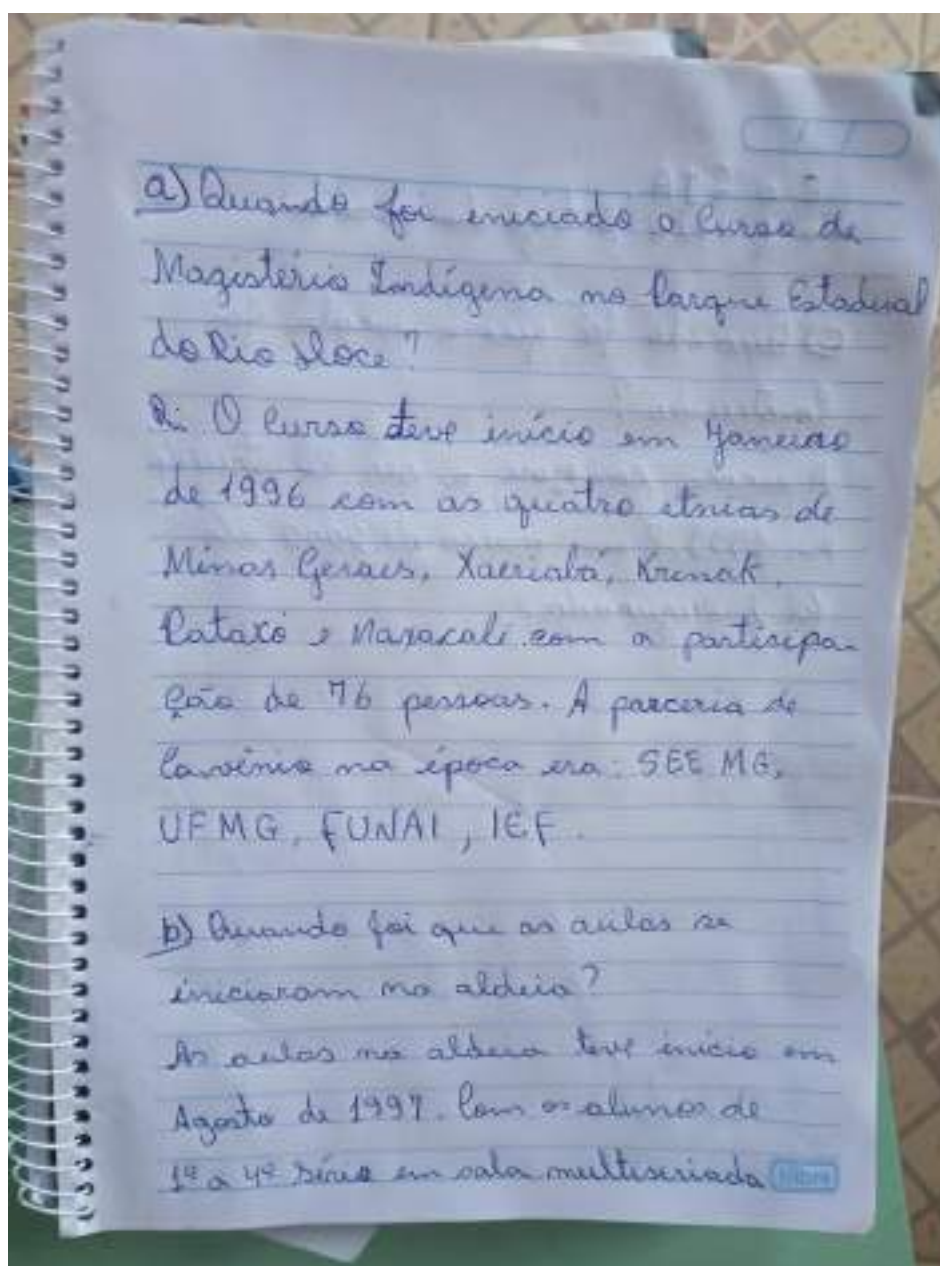 a) Quando foi iniciado o Curso de
Magistério Indígena no Parque Estadual
do Rio Doce?
R: O Curso teve início em Janeiro
de 1996 com as quatro etnias de
Minas Gerais, Xacriabá, Krenak,
Pataxó e Maxacali com a participa-
ção de 76 pessoas. A parceria de
Convênio na época era: SEE MG,
UFMG, FUNAI, IEF.
b) Quando foi que as aulas se
iniciaram na aldeia?
As aulas na aldeia teve início em
Agosto de 1997. Com os alunos de
1ª a 4ª série em sala multiseriada
tilibra